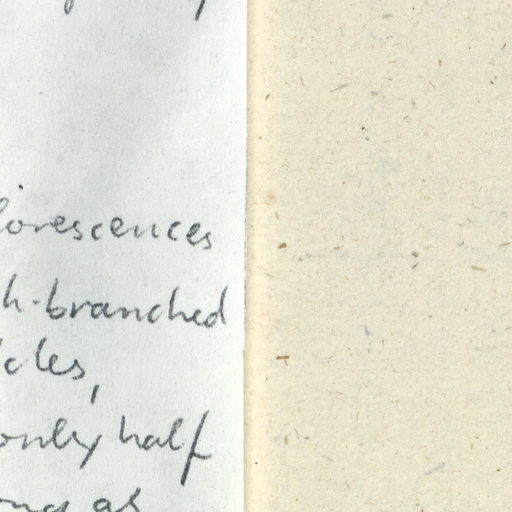 lorescences
h-branched
cles,
only half
ong as